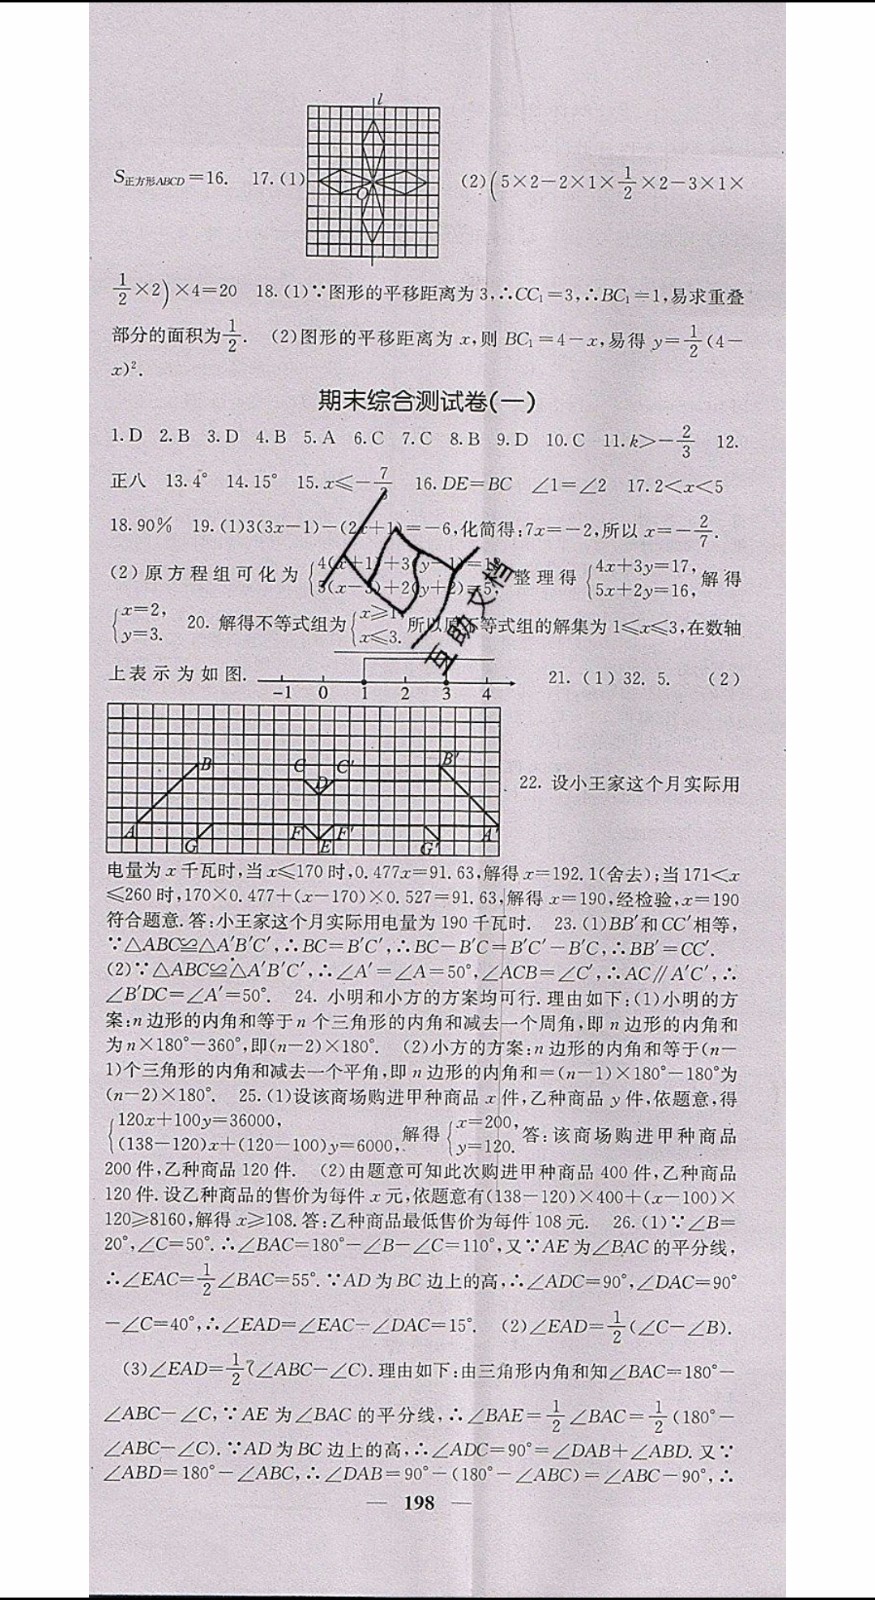 l
S正方形ABCD=16. 17.(1) O (2)(5×2-2×1×1/2×2-3×1×
1/2×2)×4=20 18.(1)∵图形的平移距离为3,∴CC₁=3,∴BC₁=1,易求重叠
部分的面积为1/2. (2)图形的平移距离为x,则BC₁=4-x,易得y=1/2(4-
x)².
期末综合测试卷(一)
1.D 2.B 3.D 4.B 5.A 6.C 7.C 8.B 9.D 10.C 11.k>-2/3 12.
正八 13.4° 14.15° 15.x≤-7/3 16.DE=BC ∠1=∠2 17.2<x<5
18.90% 19.(1)3(3x-1)-(2x+1)=-6,化简得:7x=-2,所以x=-2/7.
(2)原方程组可化为 整理得{4x+3y=17, 5x+2y=16,解得
{x=2, y=3. 20.解得不等式组为{x≥1 x≤3.所以原不等式组的解集为1≤x≤3,在数轴
上表示为如图. -1 0 1 2 3 4 21.(1)32.5. (2)
B C C' B'
D
A F F' A'
G E G'
22.设小王家这个月实际用
电量为x千瓦时,当x≤170时,0.477x=91.63,解得x=192.1(舍去);当171<x
≤260时,170×0.477+(x-170)×0.527=91.63,解得x=190,经检验,x=190
符合题意.答:小王家这个月实际用电量为190千瓦时. 23.(1)BB'和CC'相等,
∵△ABC≌△A'B'C',∴BC=B'C',∴BC-B'C=B'C'-B'C,∴BB'=CC'.
(2)∵△ABC≌△A'B'C',∴∠A'=∠A=50°,∠ACB=∠C',∴AC∥A'C',∴
∠B'DC=∠A'=50°. 24.小明和小方的方案均可行.理由如下:(1)小明的方
案:n边形的内角和等于n个三角形的内角和减去一个周角,即n边形的内角和
为n×180°-360°,即(n-2)×180°. (2)小方的方案:n边形的内角和等于(n-
1)个三角形的内角和减去一个平角,即n边形的内角和=(n-1)×180°-180°为
(n-2)×180°. 25.(1)设该商场购进甲种商品x件,乙种商品y件,依题意,得
{120x+100y=36000, (138-120)x+(120-100)y=6000,解得{x=200, y=120.答:该商场购进甲种商品
200件,乙种商品120件. (2)由题意可知此次购进甲种商品400件,乙种商品
120件.设乙种商品的售价为每件x元,依题意有(138-120)×400+(x-100)×
120≥8160,解得x≥108.答:乙种商品最低售价为每件108元. 26.(1)∵∠B=
20°,∠C=50°.∴∠BAC=180°-∠B-∠C=110°,又∵AE为∠BAC的平分线,
∴∠EAC=1/2∠BAC=55°.∵AD为BC边上的高,∴∠ADC=90°,∠DAC=90°
-∠C=40°,∴∠EAD=∠EAC-∠DAC=15°. (2)∠EAD=1/2(∠C-∠B).
(3)∠EAD=1/2(∠ABC-∠C).理由如下:由三角形内角和知∠BAC=180°-
∠ABC-∠C,∵AE为∠BAC的平分线,∴∠BAE=1/2∠BAC=1/2(180°-
∠ABC-∠C).∵AD为BC边上的高,∴∠ADC=90°=∠DAB+∠ABD.又∵
∠ABD=180°-∠ABC,∴∠DAB=90°-(180°-∠ABC)=∠ABC-90°,∴
— 198 —
互助文档